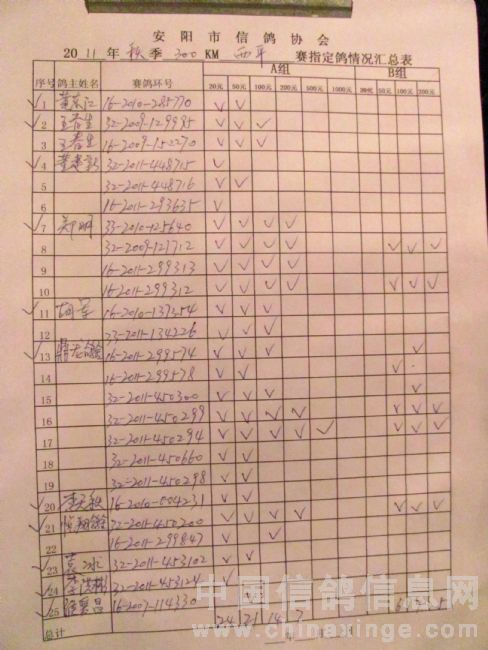 安阳市信鸽协会
2011年秋季300KM西平赛指定鸽情况汇总表
序号 鸽主姓名 赛鸽环号 A组 B组
20元 50元 100元 200元 500元 1000元 30元 50元 100元 200元
1 16-2010-285770 √ √
2 32-2009-129995 √ √ √
3 16-2009-152270 √ √ √
4 32-2011-448715 √
5 32-2011-448716 √ √
6 16-2011-293635 √
7 郑明 33-2010-125640 √ √ √ √
8 32-2009-121712 √ √ √ √ √ √ √
9 16-2011-299313 √ √ √ √
10 16-2011-299312 √ √ √ √ √ √ √
11 胡军 16-2010-137354 √ √ √
12 33-2011-134226 √ √ √
13 16-2011-299574 √ √ √ √
14 16-2011-299578 √ √ √
15 32-2011-450300 √ √ √
16 32-2011-450299 √ √ √ √ √ √ √
17 32-2011-450294 √ √ √ √ √ √ √ √
18 32-2011-450660 √ √
19 32-2011-450298 √ √
20 16-2010-004231 √ √ √ √ √
21 32-2011-450200 √ √ √ √
22 16-2011-299847 √ √
23 袁冰 32-2011-453102 √ √
24 32-2011-453124 √
25 16-2009-114330 √ √
总计 24 21 14 7
中国信鸽信息网
www.chinaxinge.com